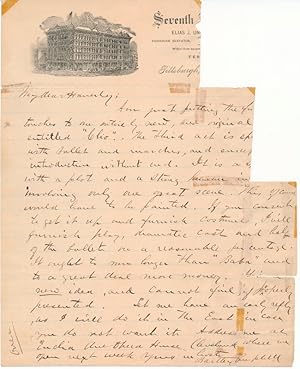 Seventh
ELIAS J. UN
PASSENGER ELEVATOR,
TER
Pittsburgh,
My dear Haverly:
Am just putting the f
touches to an entirely new, and original
entitled "Clio". The third act is sp
with ballet and marches, and
introduction without end. It is a s
with a plot and a strong
involving only one great scene, this of
would have to be painted. If you consent
to get it up and furnish costumes, I will
furnish play, dramatic cast and help
of the ballet on a reasonable percentage.
It ought to run longer than "Baba" and to
a great deal more money.
new idea, and cannot fail if properl
presented. Let me have an early reply
as I will do it in the East in case
you do not want it. Address me at
Euclid Ave Opera House Cleveland where we
open next week Yours in haste
Bartley Campbell
Over